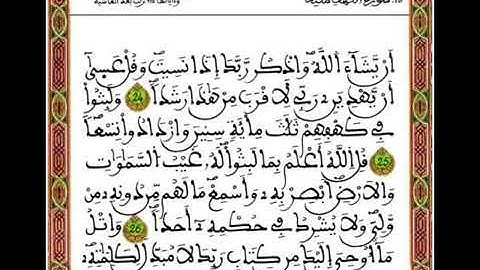 أَنْ يَّشَآءَ اَللَّهُ وَاذْكُر رَّبَّكَ إِذَا نَسِيتَ وَقُلْ عَسَىٰ
أَنْ يَّهْدِيَنِۦ رَبِّے لِأَقْرَبَ مِنْ هَٰذَا رَشَداً 24 وَلَبِثُواْ
فِے كَهْفِهِمْ ثَلَٰثَ مِاْئَةٖ سِنِينَ وَازْدَادُواْ تِسْعاً
25 قُلِ اِللَّهُ أَعْلَمُ بِمَا لَبِثُواْ لَهُۥ غَيْبُ السَّمَٰوَٰتِ
وَالاَرْضِ أَبْصِرْ بِهِۦ وَأَسْمِعْ مَا لَهُم مِّن دُونِهِۦ مِنْ
وَّلِيّٖ وَلاَ يُشْرِكُ فِے حُكْمِهِۦٓ أَحَداً 26 وَاتْلُ
مَآ أُوحِيَ إِلَيْكَ مِن كِتَابِ رَبِّكَ لاَ مُبَدِّلَ لِكَلِمَٰتِهِۦ